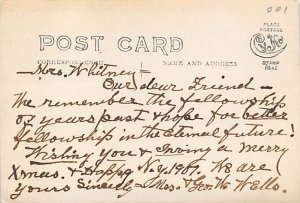 001
POST CARD
PLACE
POSTAGE
STAMP
HERE
CORRESPONDENCE
NAME AND ADDRESS
Mrs. Whitney =
Our dear Friend –
the remember the fellowship
of years past & hope for better
fellowship in the Eternal future!
Wishing you & Irving a merry
Xmas. & Happy N.Y. 1907. We are
yours Sincerely – Mrs. & Geo W. Wells.